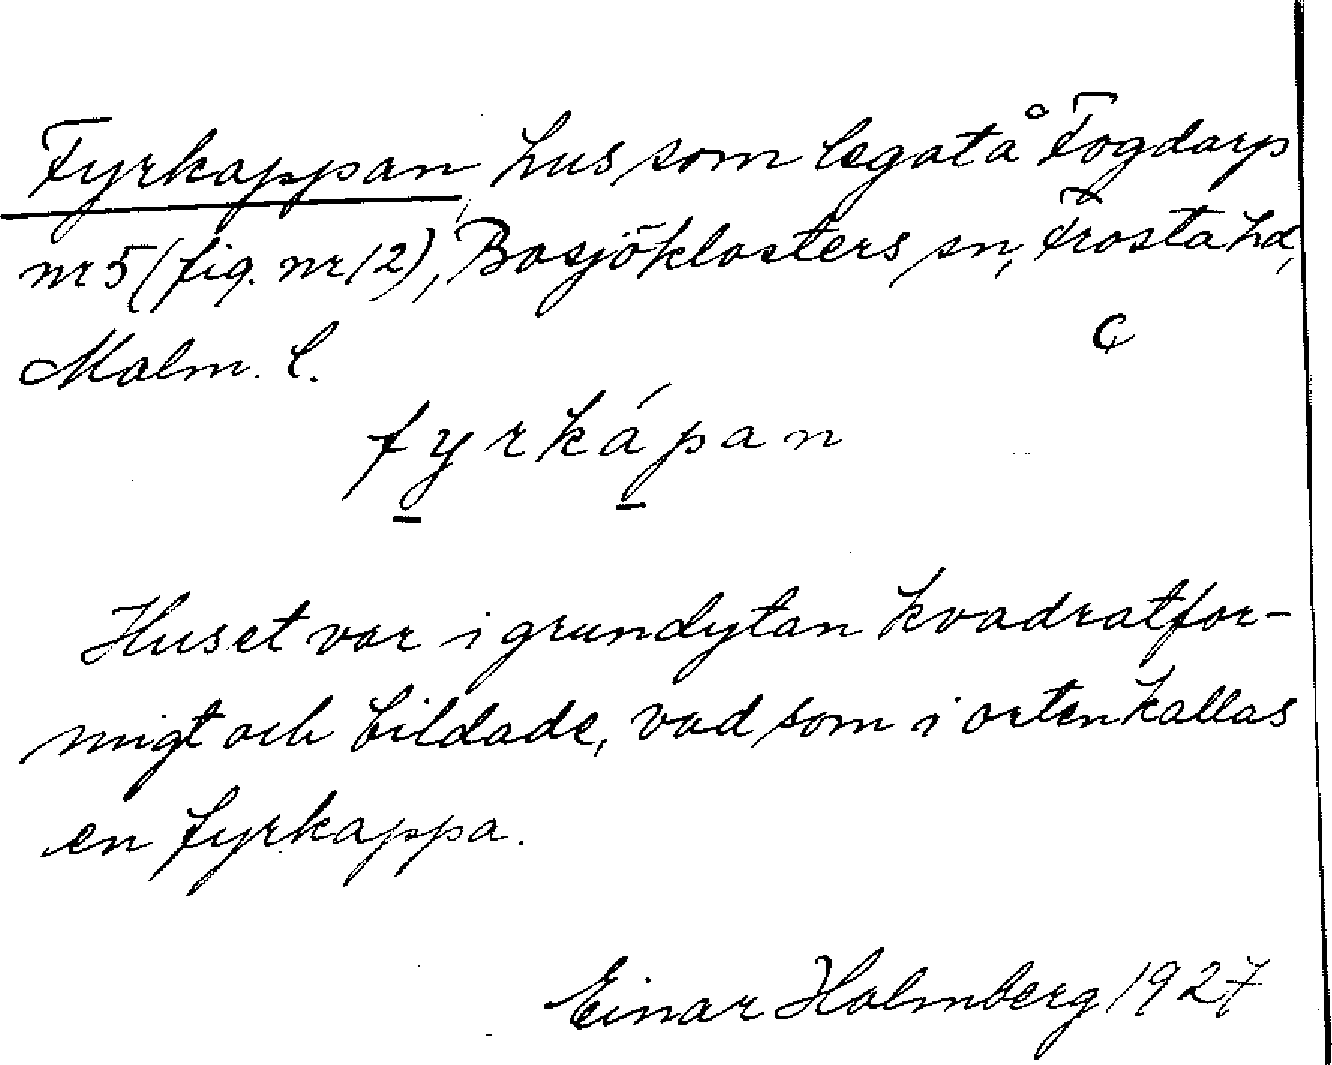 Fyrkappan, hus som legat å Fogdarp
nr 5 (fig. nr 12), Bosjöklosters sn, Frosta hd,
Malm. l.
C
fyrkápan
Huset var i grundytan kvadratfor-
migt och bildade, vad som i orten kallas
en fyrkappa.
Einar Holmberg 1927